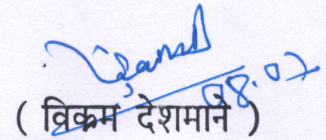 08.07
( विक्रम देशमाने )